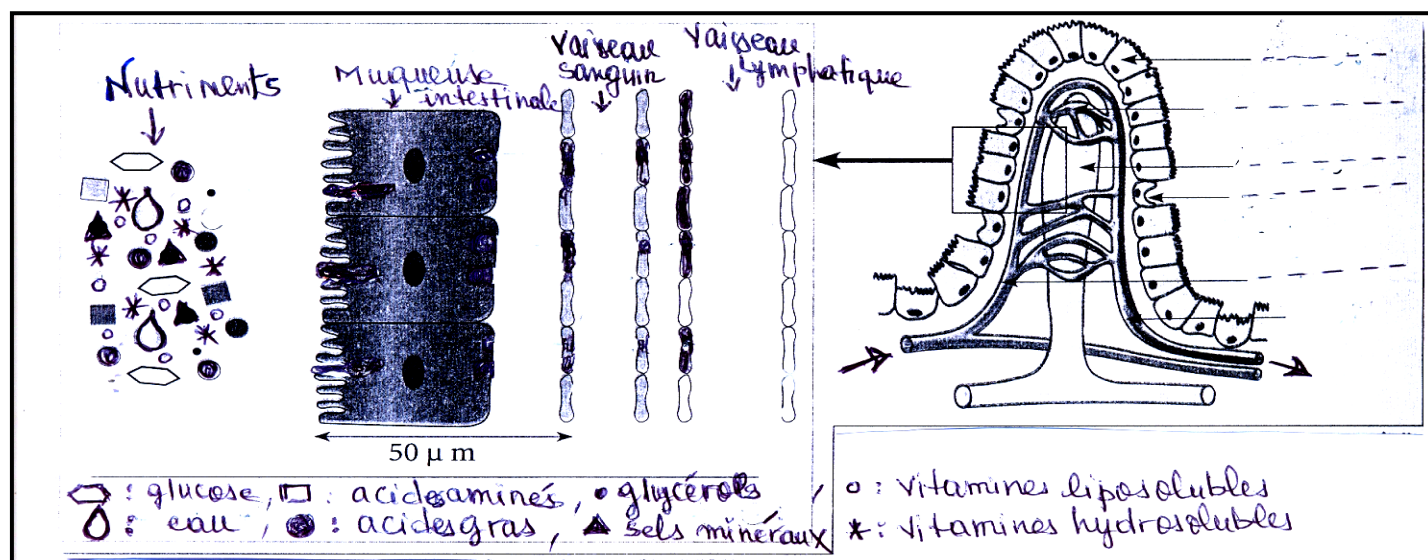 Nutriments
Muqueuse
intestinale
Vaisseau
sanguin
Vaisseau
lymphatique
50 µ m
: glucose, : acides aminés, • glycérols, o : vitamines liposolubles
: eau, : acides gras, ▲ sels minéraux * : vitamines hydrosolubles